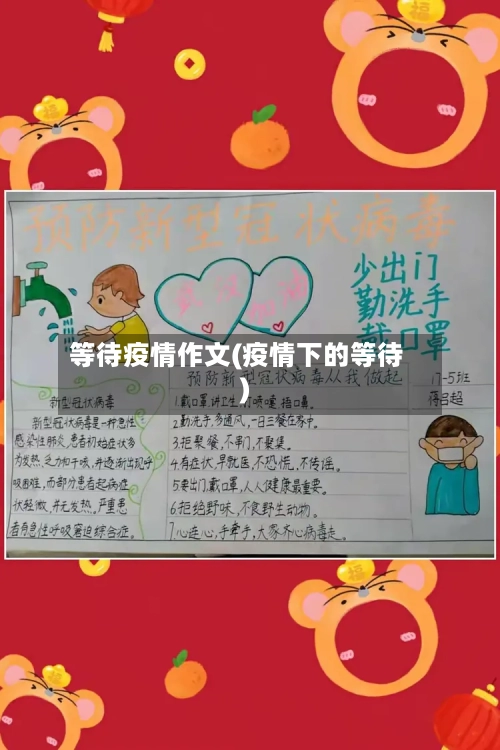 福
福
预防新型冠状病毒
少出门
勤洗手
戴口罩
武汉
加油
等待疫情作文(疫情下的等待
)
预防新型冠状病毒从我做起
17-5班
蒋吕超
新型冠状病毒
新型冠状病毒是一种急性
感染性肺炎,患者初始症状多
为发热,乏力和干咳,并逐渐出现呼
吸困难,而部分患者起病症
状轻微,并无发热,严重患
者有急性呼吸窘迫综合症。
1.戴口罩,讲卫生,打喷嚏,捂口鼻。
2.勤洗手,多通风,一日三餐在家中。
3.拒聚餐,不串门,不聚集。
4.有症状,早就医,不恐慌,不传谣。
5.要出门,戴口罩,人人健康最重要。
6.拒绝野味,不食野生动物。
7.心连心,手牵手,大家齐心病毒走。
福
福